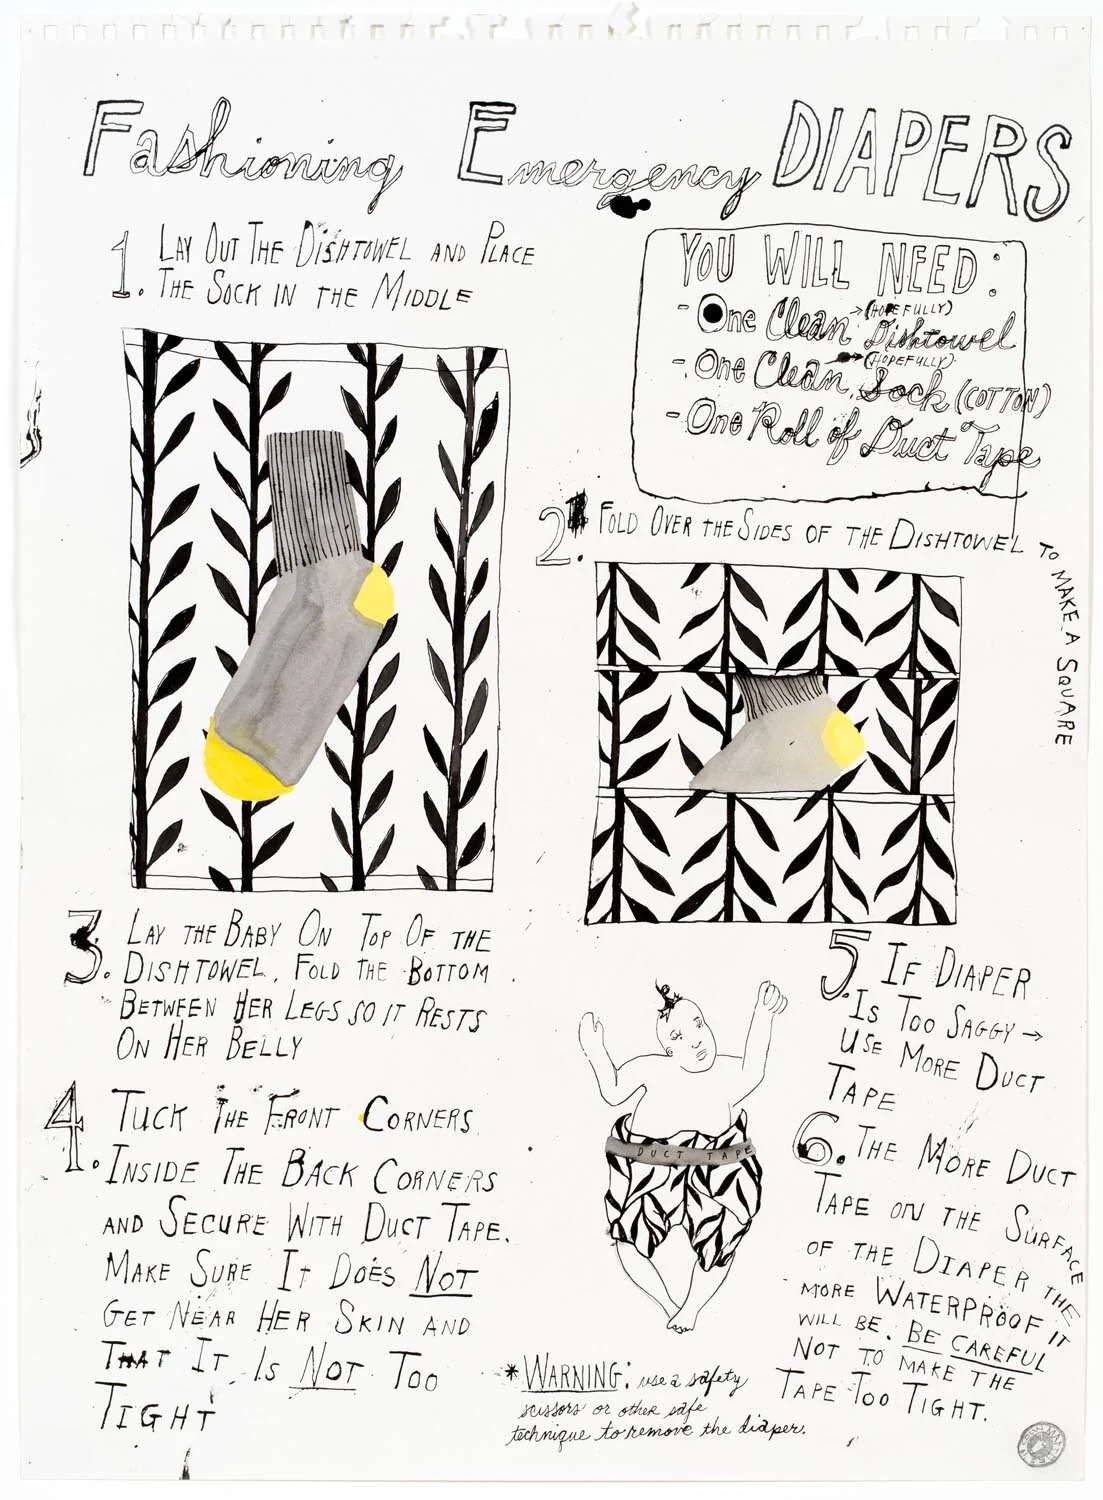 Fashioning Emergency DIAPERS
1. LAY OUT THE DISHTOWEL AND PLACE
THE SOCK IN THE MIDDLE
YOU WILL NEED:
- One Clean → (HOPEFULLY) Dishtowel
- One Clean → (HOPEFULLY) Sock (COTTON)
- One Roll of Duct Tape
2. FOLD OVER THE SIDES OF THE DISHTOWEL TO MAKE A SQUARE
3. LAY THE BABY ON TOP OF THE
DISHTOWEL. FOLD THE BOTTOM
BETWEEN HER LEGS SO IT RESTS
ON HER BELLY
4. TUCK THE FRONT CORNERS
INSIDE THE BACK CORNERS
AND SECURE WITH DUCT TAPE.
MAKE SURE IT DOES NOT
GET NEAR HER SKIN AND
THAT IT IS NOT TOO
TIGHT
DUCT TAPE
5. IF DIAPER
IS TOO SAGGY →
USE MORE DUCT
TAPE
6. THE MORE DUCT
TAPE ON THE SURFACE
OF THE DIAPER THE
MORE WATERPROOF IT
WILL BE. BE CAREFUL
NOT TO MAKE THE
TAPE TOO TIGHT.
* WARNING: use a safety
scissors or other safe
technique to remove the diaper.